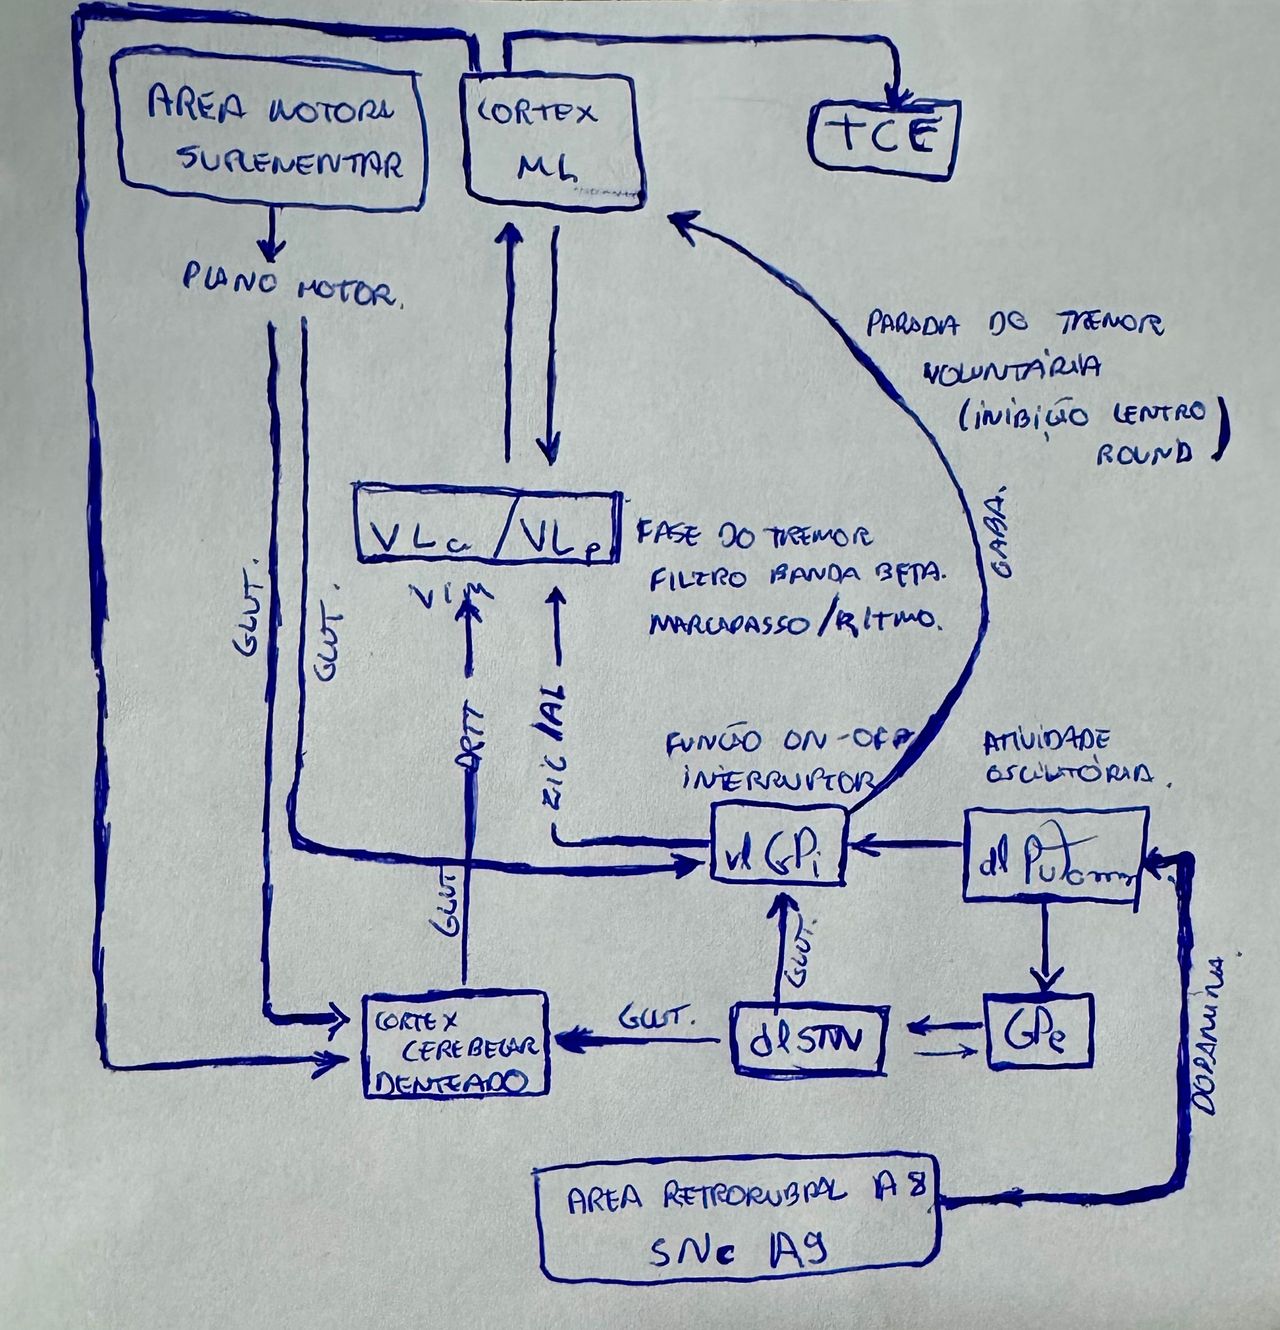 AREA MOTORA
SUPLEMENTAR
CORTEX
M1
TCE
PLANO MOTOR.
PARADA DO TREMOR
VOLUNTÁRIA
(INIBIÇÃO CENTRO
ROUND)
GABA.
VLa / VLp
VIM
FASE DO TREMOR
FILTRO BANDA BETA.
MARCAPASSO/RITMO.
GLUT.
GLUT.
DRTT
ZIC /AL
FUNÇÃO ON-OFF
INTERRUPTOR
ATIVIDADE
OSCILATÓRIA.
vl GPi
dl Putamen
GLUT
GLUT.
DOPAMINA.
CORTEX
CEREBELAR
DENTEADO
GLUT.
dl STN
GPe
AREA RETRORUBRAL A8
SNc A9